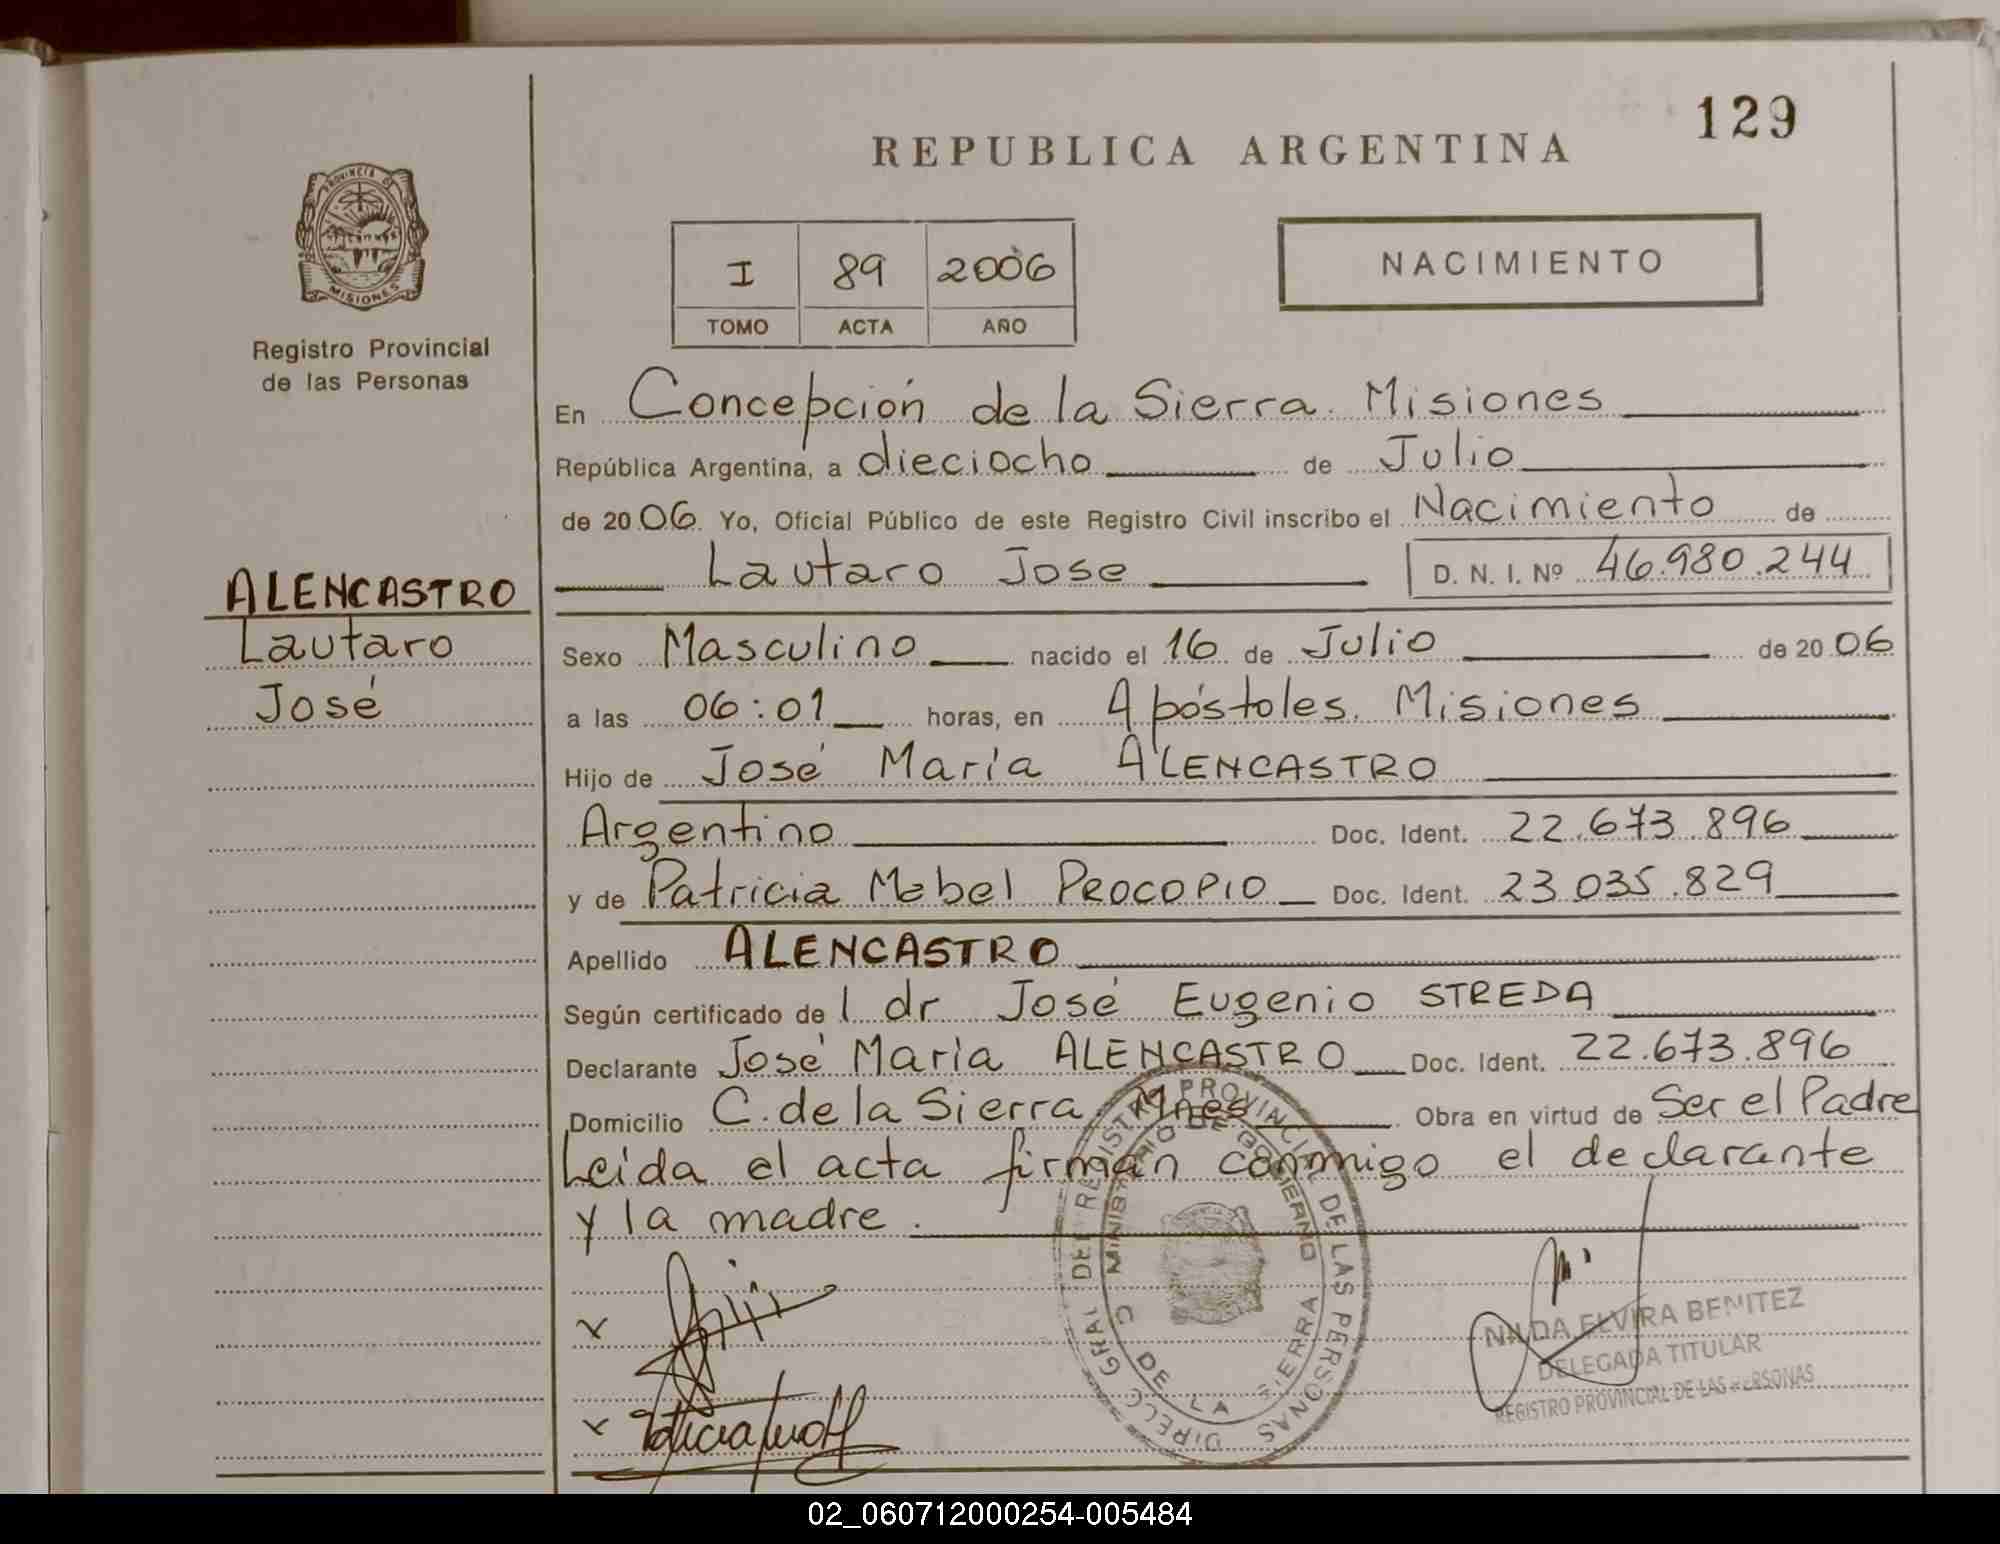 129
REPUBLICA ARGENTINA
PROVINCIA DE
MISIONES
Registro Provincial
de las Personas
I 89 2006
TOMO ACTA AÑO
NACIMIENTO
En Concepción de la Sierra. Misiones
República Argentina, a dieciocho de Julio
de 2006. Yo, Oficial Público de este Registro Civil inscribo el Nacimiento de
Lautaro Jose D. N. I. Nº 46.980.244
ALENCASTRO
Lautaro
José
Sexo Masculino nacido el 16 de Julio de 2006
a las 06:01 horas, en Apóstoles. Misiones
Hijo de José María ALENCASTRO
Argentino Doc. Ident. 22.673.896
y de Patricia Mabel PROCOPIO Doc. Ident. 23.035.829
Apellido ALENCASTRO
Según certificado de l dr José Eugenio STREDA
Declarante José María ALENCASTRO Doc. Ident. 22.673.896
Domicilio C. de la Sierra. Mnes Obra en virtud de Ser el Padre
Leida el acta firman conmigo el declarante
y la madre.
DIRECC GRAL DEL REGISTRO PROVINCIAL DE LAS PERSONAS
MINISTERIO DE GOBIERNO
C DE LA SIERRA
NILDA ELVIRA BENITEZ
DELEGADA TITULAR
REGISTRO PROVINCIAL DE LAS PERSONAS
02_060712000254-005484